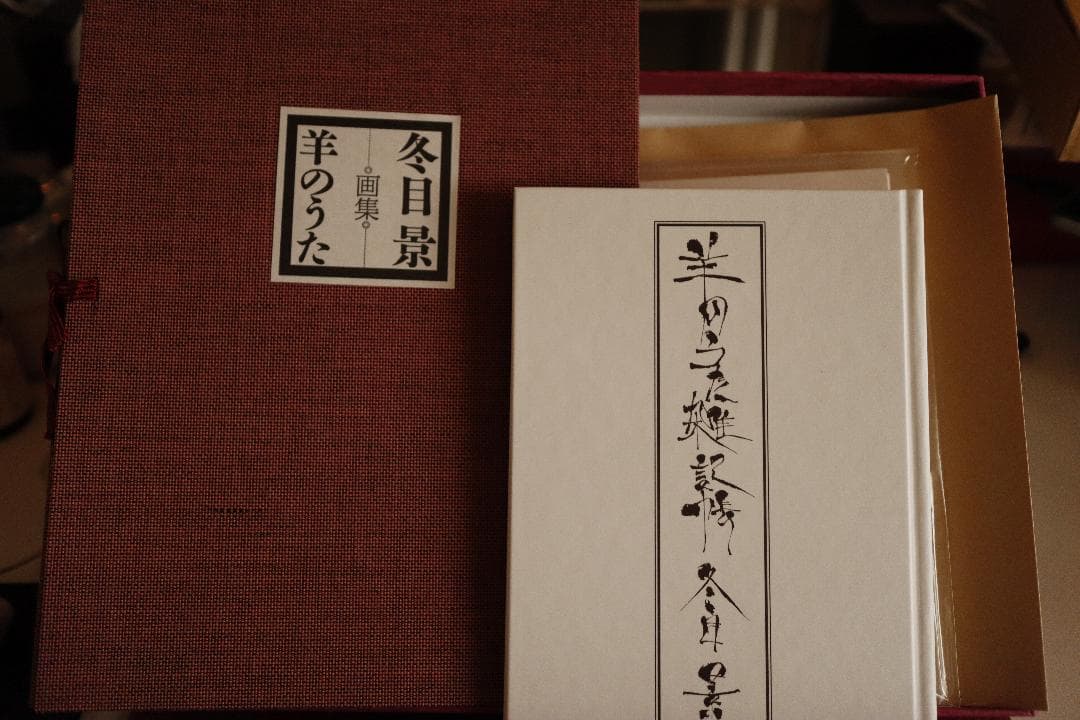 冬目景
画集
羊のうた
羊のうた雑記帳
冬目景